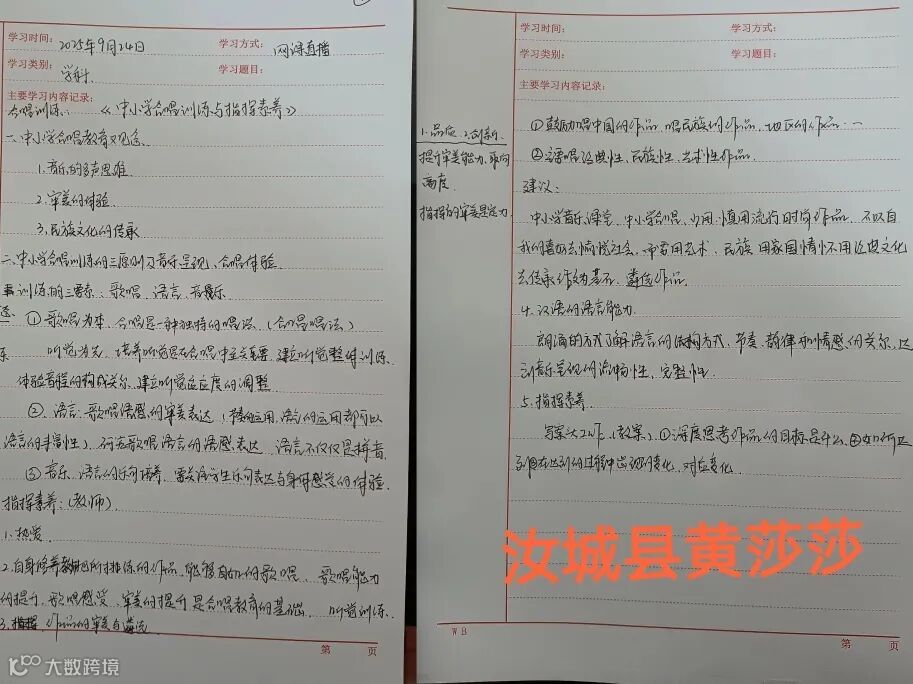 学习时间： 2025年9月24日 学习方式： 网课直播
学习类别： 学科 学习题目：
主要学习内容记录：
合唱训练： 《中小学合唱训练与指挥素养》
一、中小学合唱教育
1.音乐的多声思维
2.审美的体验
3.民族文化的传承
二、中小学合唱训练的三原则及音乐呈现、合唱体验
训练的三要素：歌唱、语言、音乐
①歌唱为本，合唱是一种独特的唱法。（合唱唱法）
听觉为先，培养听觉思在合唱中至关重要，建立听觉整体训练
体验音程的构成关系，建立听觉适应度的调整
②语言：歌唱语感的审美表达，语言的运用都可以
语言的丰富性）、歌唱语言的语感表达，语言不仅仅是拼音
③音乐、语言的乐句培养，要关注学生乐句表达与身体感受的体验
指挥素养：（教师）
1.热爱
2.自身修养所排练的作品，能够自如的歌唱、歌唱能力
的提升，歌唱感受、审美的提升是合唱教育的基础 听前训练
3.指挥、作品的审美与遴选
第 页
学习时间： 学习方式：
学习类别： 学习题目：
主要学习内容记录：
①鼓励唱中国的作品，唱民族的作品，地区的作品…
②要唱经典性、民族性、艺术性作品
1.品位 2.创新
提升审美能力、取向
高度
指挥的审美是定力
建议：
中小学音乐课堂、中小学合唱，少用、慎用流行时尚作品，不以自
我的喜好去愉悦社会，而要用艺术、民族、用家国情怀、用经典文化
去传承作为基石，遴选作品
4.汉语的语言能力
朗诵的方式了解语言的结构方式、节奏、韵律和情感的关系，达
到音乐呈现的流畅性、完整性
5.指挥素养
写案头工作（教案）①深度思考作品的目标是什么 ②如何达
到 ③在达到的过程中出现的变化，对应变化
汝城县黄莎莎
WB
第 页
大数跨境